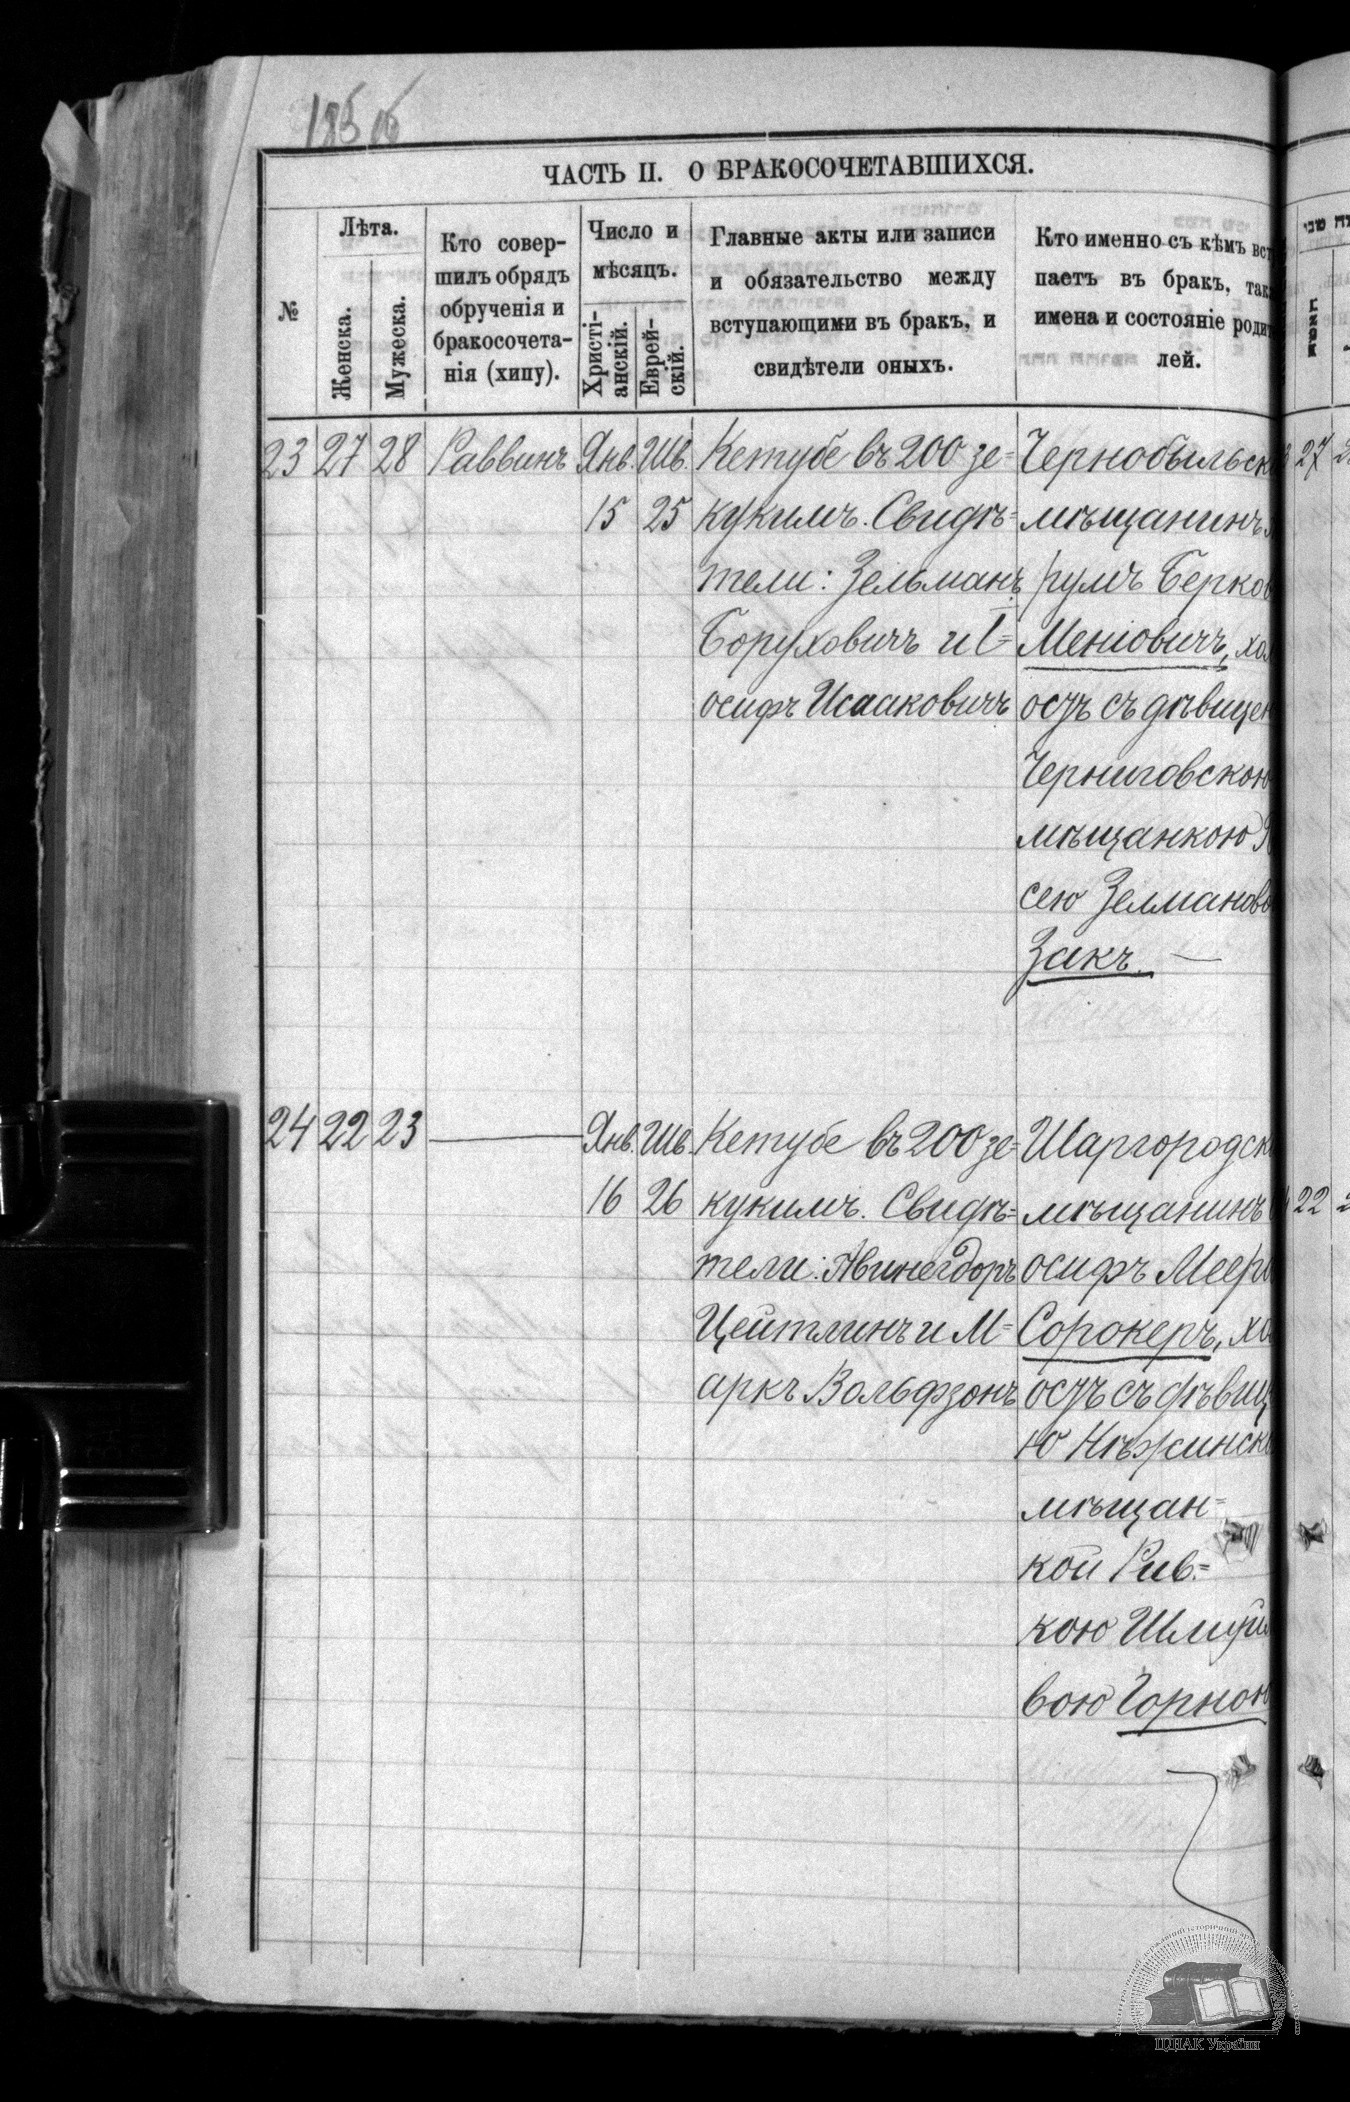 185об
ЧАСТЬ II. О БРАКОСОЧЕТАВШИХСЯ.
№
Лѣта.
Женска.
Мужеска.
Кто совер-
шилъ обрядъ
обрученія и
бракосочета-
нія (хипу).
Число и
мѣсяцъ.
Христі-
анскій.
Еврей-
скій.
Главные акты или записи
и обязательство между
вступающими въ бракъ, и
свидѣтели оныхъ.
Кто именно съ кѣмъ вст
паетъ въ бракъ, так
имена и состояніе родит
лей.
23 27 28 Раввинъ Янв. Шв.
15 25
Кетубе въ 200 зе-
кукимъ. Свидѣ=
тели: Зельманъ
Боруховичъ и І=
осифъ Исааковичъ
Чернобыльск
мѣщанинъ
румъ Берков
Меніовичъ, хол
остъ съ дѣвицею
Черниговскою
мѣщанкою
сею Зелманово
Закъ. —
24 22 23 — Янв. Шв.
16 26
Кетубе въ 200 зе-
кукимъ. Свидѣ=
тели: Авинегдоръ
Цейтлинъ и М=
аркъ Вольфзонъ
Шаргородск
мѣщанинъ
осифъ Мееро
Сорокеръ, хо
остъ съ дѣвиц
ю Нѣжинско
мѣщан=
кой Рив=
кою Шмуйл
вою Горною
27
22
ЦДІАК України